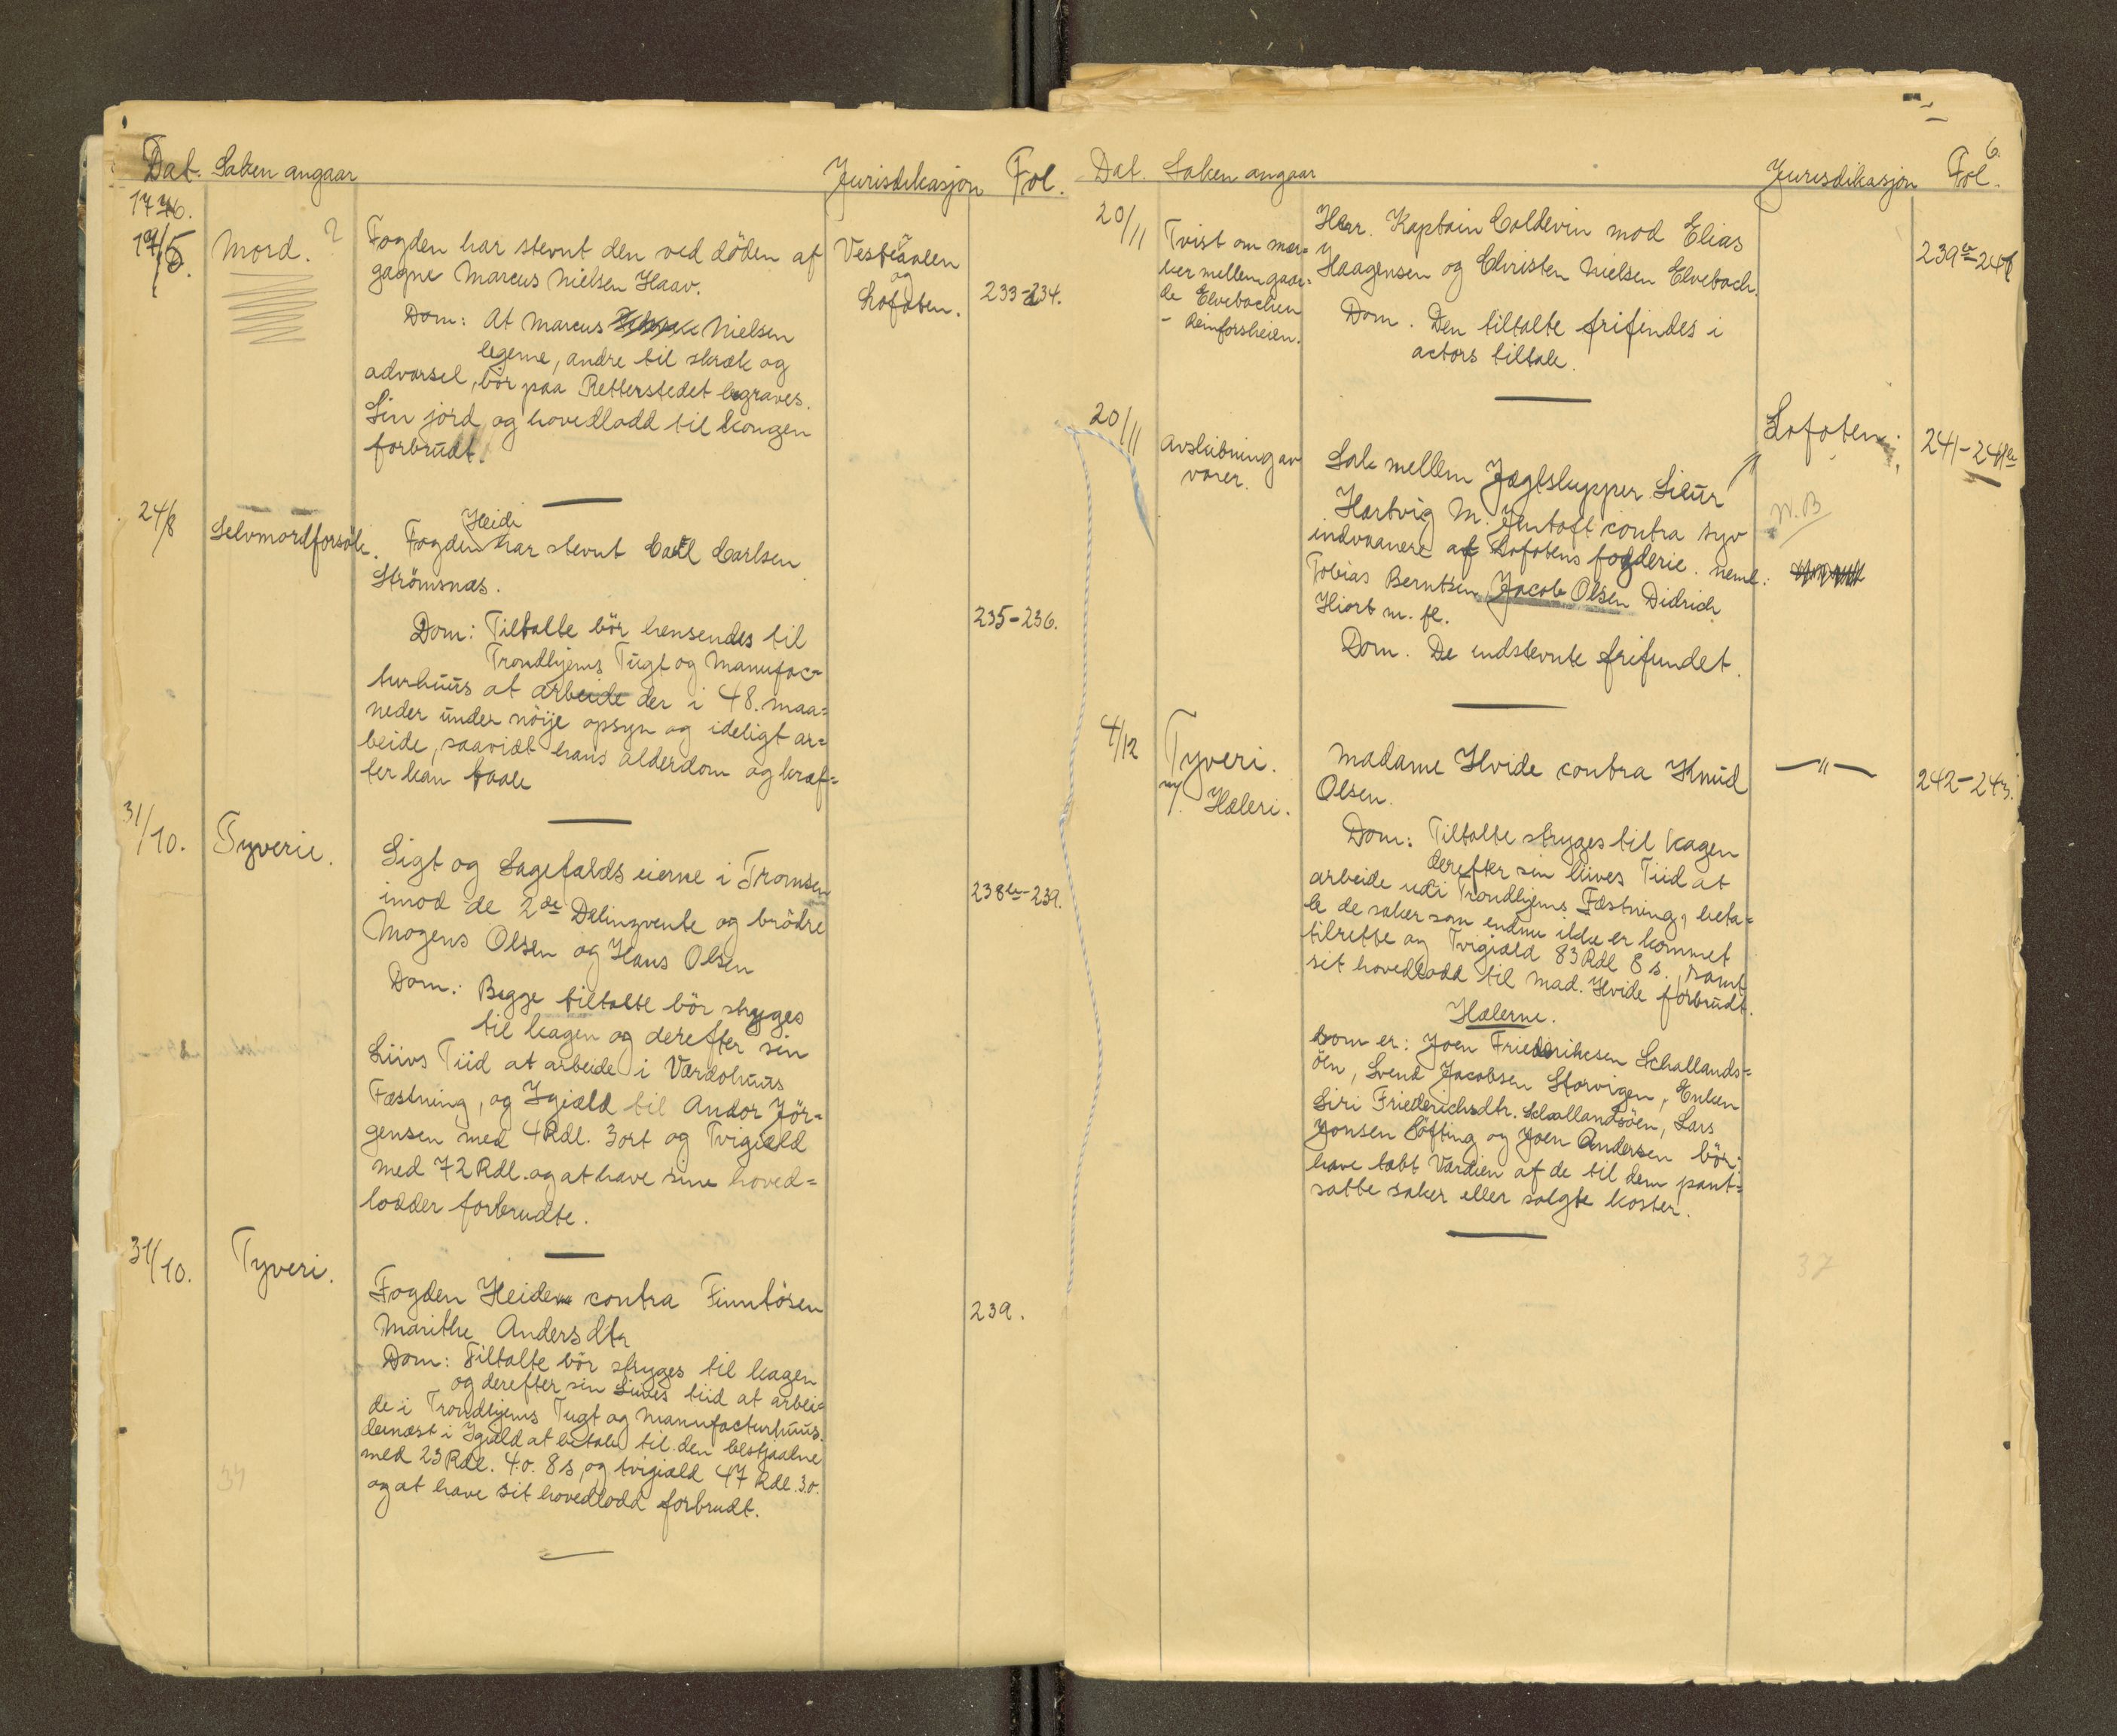 Dat. Saken angaar Jurisdikasjon Fol.
1776.
19/5. Mord. ?
Fogden har stevnt den ved döden af
gagne Marcus Nielsen Haav.
Dom: At Marcus Nielsen
legeme, andre til skræk og
advarsel, bör paa Retterstedet begraves.
Sin jord og hovedlodd til kongen
forbrudt.
Vesteraalen
og
Lofoten.
233-234.
24/8 Selvmordforsök.
Heide
Fogden har stevnt Carl Carlsen
Strömsnæs.
Dom: Tiltalte bör hensendes til
Trondhjems Tugt og Manufac=
turhuus at arbeide der i 48. maa=
neder under nöije opsyn og ideligt ar=
beide, saavidt hans alderdom og kræf=
ter kan taale
235-236.
31/10. Tyverie.
Sigt og Sagefalds eierne i Tromsen
imod de 2de Delinqvente og brödre
Mogens Olsen og Hans Olsen
Dom: Begge tiltalte bör stryges
til kagen og derefter sin
Liivs Tiid at arbeide i Vardöhuus
Fæstning, og Igiæld til Andor Jör=
gensen med 4 Rdl. 3 ort og Tvigiæld
med 72 Rdl. og at have sine hoved=
lodder forbrudte.
238b-239.
31/10. Tyveri.
Fogden Heide contra Finntösen
Marithe Andersdtr
Dom: Tiltalte bör stryges til kagen
og derefter sin Liives tiid at arbei=
de i Trondhjems Tugt og Manufacturhuus.
dernæst i Igiæld at betale til den bestjaalne
med 23 Rdl. 4 o. 8 s, og tvigiæld 47 Rdl. 3 o.
og at have sit hovedlodd forbrudt.
239.
34
6.
Dat. Saken angaar Jurisdikasjon Fol.
20/11
Tvist om mær=
ker mellem gaar=
de Elvebacken
- Reinforsheien.
Herr. Kaptain Coldevin mod Elias
Haagensen og Christen Nielsen Elvebach.
Dom. Den tiltalte frifindes i
actors tiltale.
239b-241
20/11
Avskibning av
varer.
Sak mellem Jægtskipper Sieur
Hartvig M. Jentoft contra syv
indvaanere af Lofotens fogderie. neml:
Tobias Berntsen, Jacob Olsen Didrich
Hiort m. fl.
Dom. De indstevnte frifundet.
Lofoten.
N.B
241-241b
4/12
Tyveri.
m/. Hæleri.
Madame Hvide contra Knud
Olsen.
Dom: Tiltalte stryges til kagen
derefter sin liives Tiid at
arbeide udi Trondhjems Fæstning, beta=
le de saker som endnu ikke er kommet
tilrette og Tvigiæld 83 Rdl 8 s., samt
sit hovedlodd til Mad. Hvide forbrudt.
Hælerne.
som er: Joen Friederichsen Schallands=
öen, Svend Jacobsen Storvigen, Enken
Siri Friederichsdtr. Schallandsöen, Lars
Jonsen Göfting og Joen Andersen bör:
have tabt Værdien af de til dem pant=
satte saker eller solgte koster.
—"—
242-243.
37